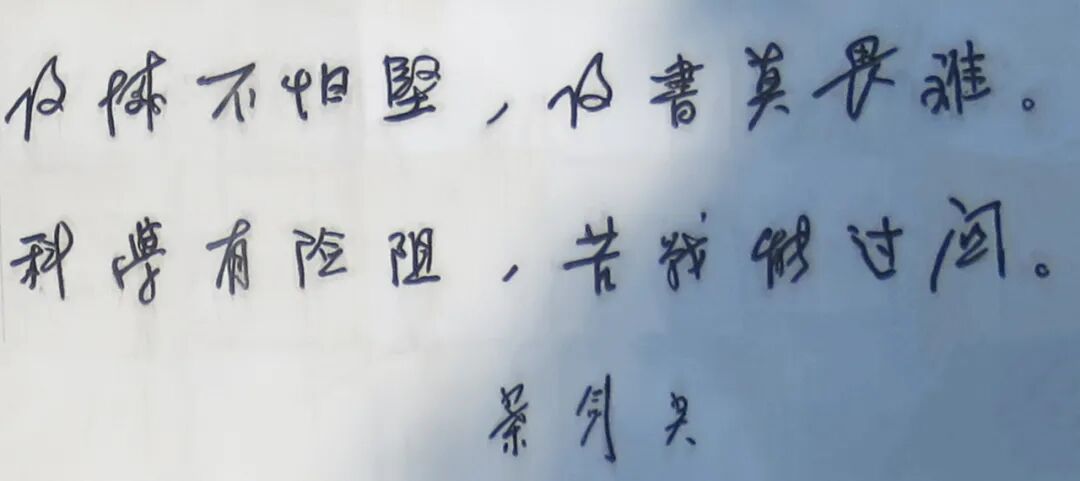 攻城不怕堅，攻書莫畏难。
科學有险阻，苦战能过関。
葉剑英